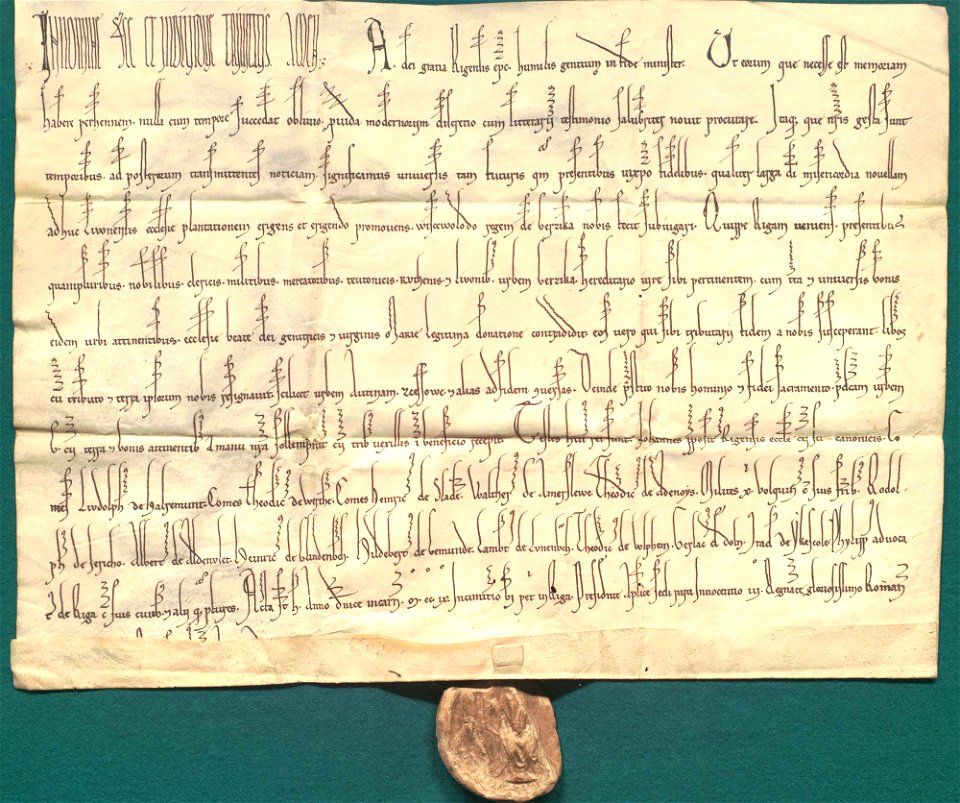 IN NOMINE SCE ET INDIVIDUE TRINITATIS AMEN. A. dei gratia Rigensis epc. humilis gentium in fide minister. Ut eorum que necesse est memoriam
habere perhennem. nulla cum tempore succedat oblivio. p̱vida modernorum diligetio cum litterarum testimonio salubriter novit procurare. Itaq; que nr̄is gesta sunt
temporibus. ad posterorum transmittentes noticiam. significamus universis tam futuris qm presentibus xp̄o fidelibus. qualiter larga di misericordia novellam
adhuc Livonensis ecclesie plantationem erigens et erigendo promovens. wiscewolodo regem de berzika nobis fecit subiugari. Quippe Rigam veniens. presentibus
quampluribus. nobilibus. clericis. militibus. mercatoribus. teutonicis. Ruthenis. ⁊ livonib. urbem berzika. hereditario iure sibi pertinentem. cum tra ⁊ universis bonis
eidem urbi attinentibus. ecclesie beate dei genitricis ⁊ virginis Marie legitima donatione contradidit. eos vero qui sibi tributarii fidem a nobis susceperant. libos
cū tributo ⁊ terra ipsorum nobis resignavit scilicet urbem autinam. zcessowe. ⁊ alias ad fidem ꝯversas. Deinde p̄stito nobis hominio ⁊ fidei sacramento. p̄dcam urbem
b. cū terra ⁊ bonis attinentib. a manu nr̄a sollempnit cū trib vexillis ī beneficio recepit. Testes hui rei sunt. Johannes ppositus Rigensis eccle cū suis canonicis. Co
mes Ludolph de halremunt. Comes theodic de werthe. Comes heinric de slade. Walther de amerslewe. theodic de adenoys. Milites x̄. volquin ꝯ suis frib. Rodol-
ph de Jericho. Albert de aldenvlet. heinric de blandenboch. hildebert de vemunde. Lambt de Lunenboch. theodic de wlphem. Gerlac de doln. ꝯrad de ykescole. Philipp advoca
t de Riga ꝯ suis civib. ⁊ alii q̄ plures. Acta sт h. Anno dnice incarn. M. cc. ix. Indictione xi per in Riga. Presidente aplice sedi papa Innocentio iii. Regnante gloriosissimo Romano